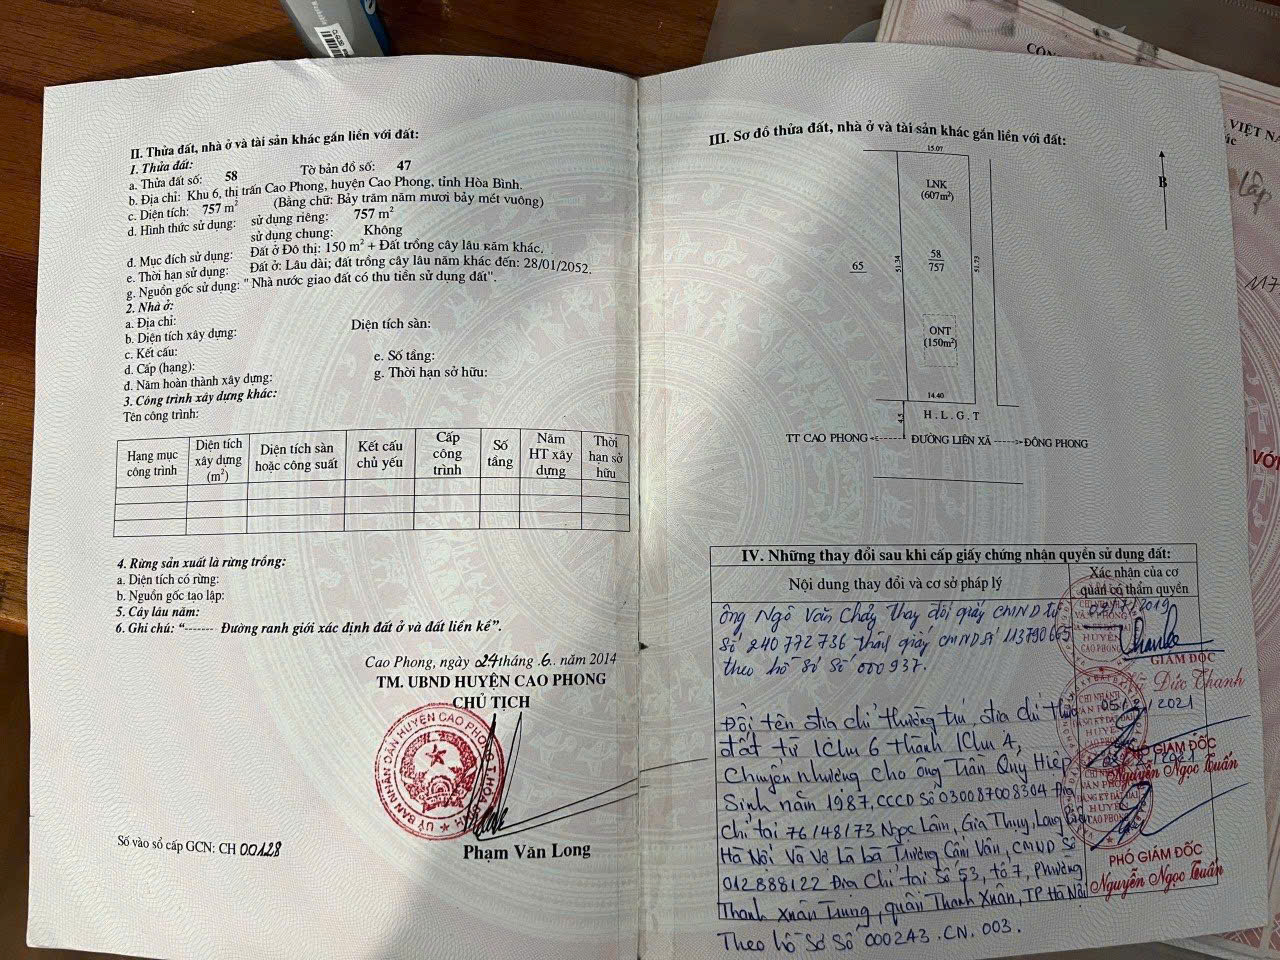 II. Thửa đất, nhà ở và tài sản khác gắn liền với đất:
1. Thửa đất:
a. Thửa đất số: 58 Tờ bản đồ số: 47
b. Địa chỉ: Khu 6, thị trấn Cao Phong, huyện Cao Phong, tỉnh Hòa Bình.
c. Diện tích: 757 m² (Bằng chữ: Bảy trăm năm mươi bảy mét vuông)
d. Hình thức sử dụng: sử dụng riêng: 757 m²
sử dụng chung: Không
đ. Mục đích sử dụng: Đất ở Đô thị: 150 m² + Đất trồng cây lâu năm khác.
e. Thời hạn sử dụng: Đất ở: Lâu dài; đất trồng cây lâu năm khác đến: 28/01/2052.
g. Nguồn gốc sử dụng: " Nhà nước giao đất có thu tiền sử dụng đất".
2. Nhà ở:
a. Địa chỉ:
b. Diện tích xây dựng: Diện tích sàn:
c. Kết cấu:
d. Cấp (hạng): e. Số tầng:
đ. Năm hoàn thành xây dựng: g. Thời hạn sở hữu:
3. Công trình xây dựng khác:
Tên công trình:
Hạng mục công trình
Diện tích xây dựng (m²)
Diện tích sàn hoặc công suất
Kết cấu chủ yếu
Cấp công trình
Số tầng
Năm HT xây dựng
Thời hạn sở hữu
4. Rừng sản xuất là rừng trồng:
a. Diện tích có rừng:
b. Nguồn gốc tạo lập:
5. Cây lâu năm:
6. Ghi chú: “------- Đường ranh giới xác định đất ở và đất liền kề”.
Cao Phong, ngày 24 tháng .6.. năm 2014
TM. UBND HUYỆN CAO PHONG
CHỦ TỊCH
Phạm Văn Long
Số vào sổ cấp GCN: CH 00128
III. Sơ đồ thửa đất, nhà ở và tài sản khác gắn liền với đất:
15.07
LNK
(607m²)
B
65
51.34
58
757
51.73
ONT
(150m²)
14.40
4.5
H.L.G.T
TT CAO PHONG ĐƯỜNG LIÊN XÃ ĐÔNG PHONG
IV. Những thay đổi sau khi cấp giấy chứng nhận quyền sử dụng đất:
Nội dung thay đổi và cơ sở pháp lý
Xác nhận của cơ quan có thẩm quyền
Ông Ngô Văn Chảy thay đổi giấy CMND từ
số 240772736 thành giấy CMND số 113790665
theo hồ sơ số 000937.
GIÁM ĐỐC
Đức Thanh
Đổi tên địa chỉ thường trú, địa chỉ thửa
đất từ Khu 6 thành Khu 4,
05/2/2021
PHÓ GIÁM ĐỐC
Nguyễn Ngọc Tuấn
Chuyển nhượng cho ông Trần Quy Hiệp
Sinh năm 1987, CCCD Số 030087008304 Địa
chỉ tại 76/48/173 Ngọc Lâm, Gia Thụy, Long Biên
Hà Nội Và Vợ là bà Trương Cẩm Vân, CMND Số
012888122 Địa chỉ tại số 53, tổ 7, phường
Thanh Xuân Trung, quận Thanh Xuân, TP Hà Nội
Theo hồ sơ số 000243.CN.003.
PHÓ GIÁM ĐỐC
Nguyễn Ngọc Tuấn
VIỆT NA
Lập
117
VỚI